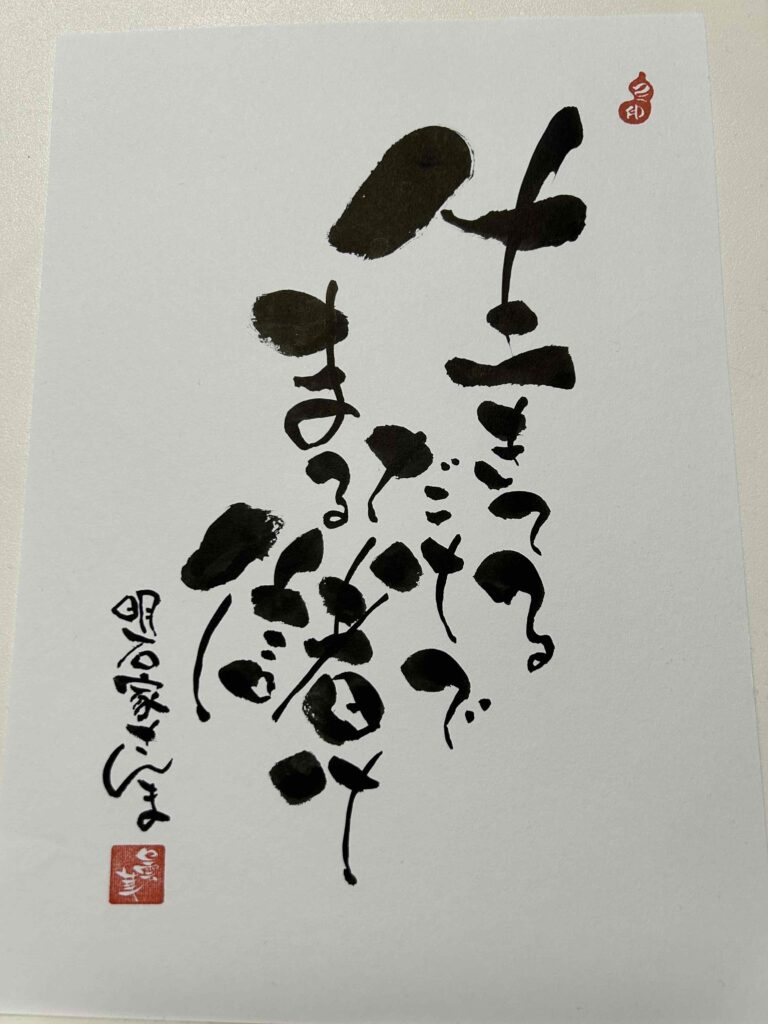 生きてる
だけで
まる
儲け
明石家さんま